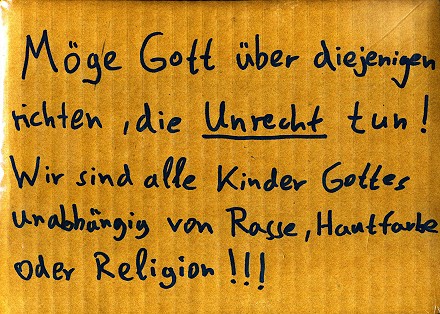 Möge Gott über diejenigen
richten, die Unrecht tun!
Wir sind alle Kinder Gottes
unabhängig von Rasse, Hautfarbe
oder Religion!!!